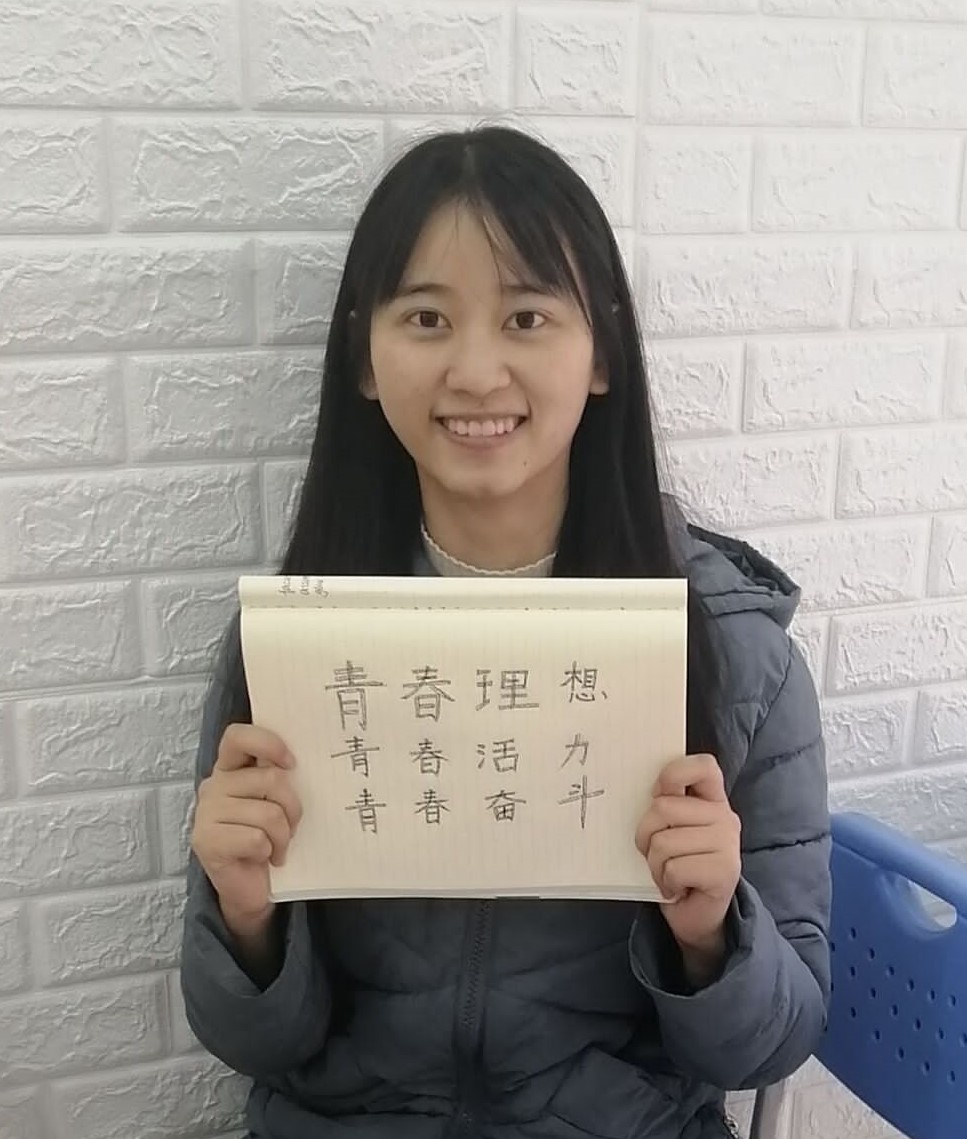 青春理想
青春活力
青春奋斗